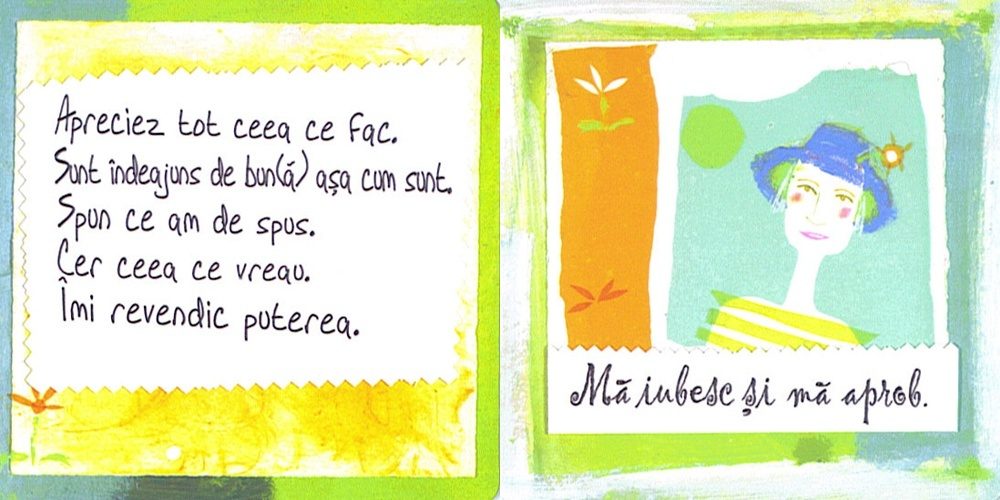 Apreciez tot ceea ce fac.
Sunt îndeajuns de bun(ă) așa cum sunt.
Spun ce am de spus.
Cer ceea ce vreau.
Îmi revendic puterea.
Mă iubesc și mă aprob.